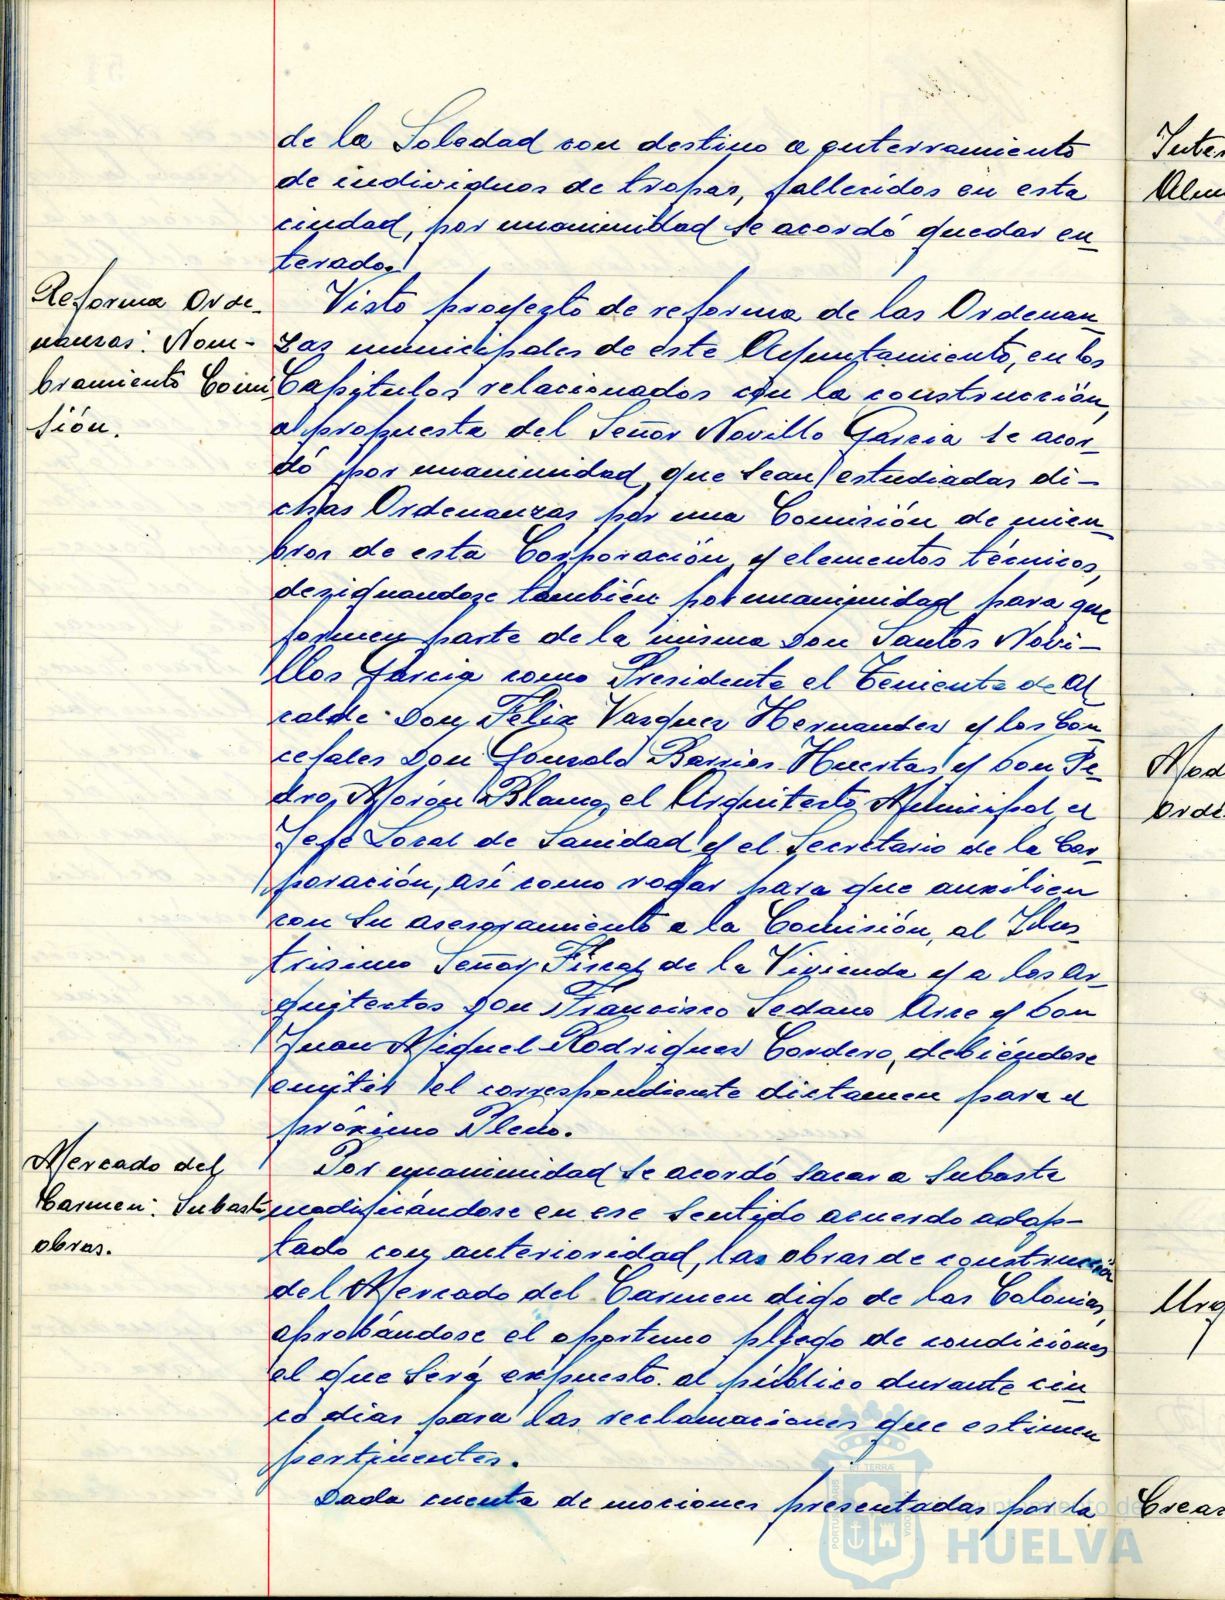 de la Soledad con destino a enterramiento
de individuos de tropas, fallecidos en esta
ciudad, por unanimidad se acordó quedar en_
terado.
Reforma Orde_
nanzas: Nom-
bramiento Comi
sión.
Visto proyecto de reforma de las Ordenan_
zas municipales de este Ayuntamiento, en los
Capítulos relacionados con la construcción,
a propuesta del Señor Novillo Garcia se acor_
dó por unanimidad que sean estudiadas di-
chas Ordenanzas por una Comisión de miem_
bros de esta Corporación y elementos técnicos,
designandose también por unanimidad para que
formen parte de la misma Don Santos Novi-
llos Garcia como Presidente el Teniente de Al_
calde Don Félix Vazquez Hernandez y los Con_
cejales Don Gonzalo Barrios Huertas y Don Pe_
dro Morón Blanco, el Arquitecto Municipal el
Jefe Local de Sanidad y el Secretario de la Cor_
poración, así como rogar para que auxilien
con su asesoramiento a la Comisión, al Ilus_
trisimo Señor Fiscal de la Vivienda y a los Ar_
quitectos Don Francisco Sedano Arce y Don
Juan Miguel Rodriguez Cordero, debiéndose
emitir el correspondiente dictamen para el
próximo Pleno.
Mercado del
Carmen: Subasta
obras.
Por unanimidad se acordó sacar a subasta
modificándose en ese sentido acuerdo adop-
tado con anterioridad, las obras de construcción
del Mercado del Carmen digo de las Colonias,
aprobándose el oportuno pliego de condiciones
el que será expuesto al público durante cin_
co dias para las reclamaciones que estimen
pertinentes.
Dada cuenta de mociones presentadas por la
Ayuntamiento de
HUELVA